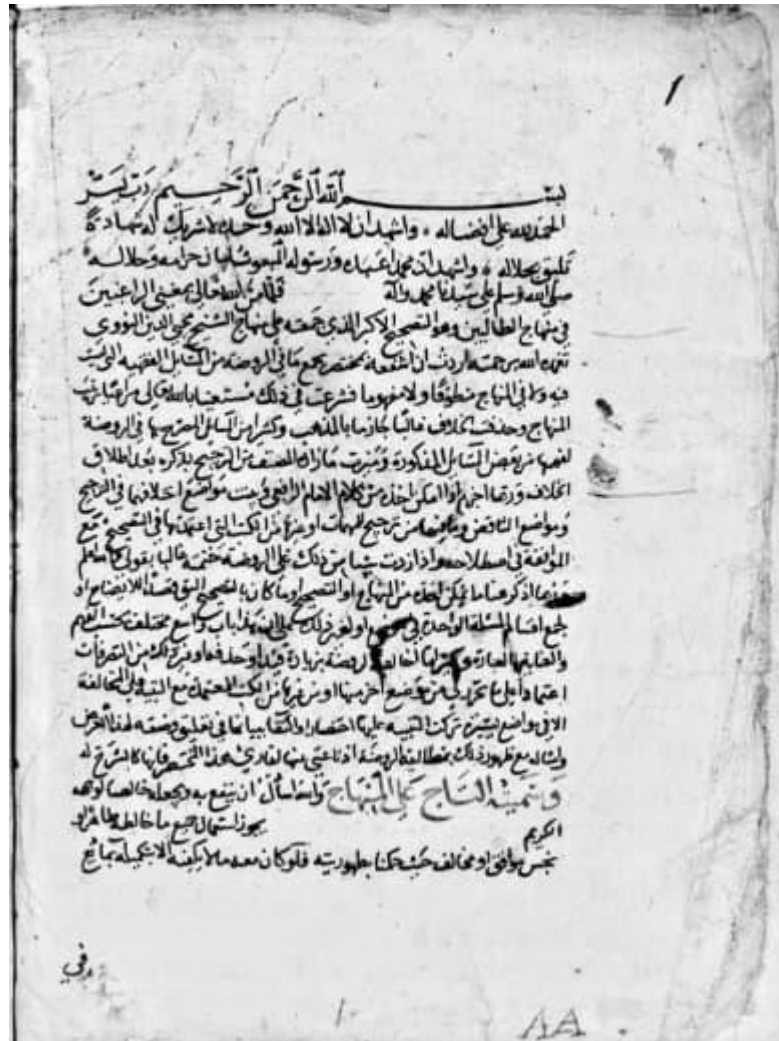 ١
بسم الله الرحمن الرحيم رب يسر
الحمد لله على افضاله واشهد ان لا اله الا الله وحده لا شريك له شهادة
تليق بجلاله واشهد ان محمدا عبده ورسوله المبعوث لبيان حرامه وحلاله
صلى الله وسلم على سيدنا محمد وآله فلما من الله تعالى بمعنى الراغبين
في منهاج الطالبين وهو التصحيح الاكبر الذي جمعته على منهاج الشيخ محيي الدين النووي
تغمده الله برحمته اردت ان اشفعه بمختصر يجمع ما في الروضة من المسائل الفقهية التي ليست
فيه ولا في المنهاج منطوقا ولا مفهوما فشرعت في ذلك مستعينا بالله تعالى مراعيا ترتيب
المنهاج وحذفت الخلاف غالبا جازما بالمذهب وكثيرا من المسائل المصرح بها في الروضة
لفهمها من بعض المسائل المذكورة وميزت ما زاده المصنف من الترجيح بذكره بعد اطلاق
الخلاف وربما اجزم او امكن اخذه من كلام الامام الرافعي وبينت مواضع اختلافهما في الترجيح
ومواضع التناقض وما من ترجيح المهمات او غيرها من الكتب التي اعتمدتها في التصحيح مع
الموافقة في اصطلاحه واذا زدت شيا من ذلك على الروضة ختمته غالبا بقولي والله اعلم
وربما اذكر هنا ما يمكن اخذه من المنهاج او التصحيح او ما كان بالتصحيح اليق قصدا للايضاح او
لجمع اقسام المسئلة الواحدة في او لغير ذلك على ان هذا باب واسع مختلف بحسب الفهم
والعناية بالعبارة لروضة بزيادة قيد او حذفه او غير ذلك من التصرفات
اعتمادا على ما تحرر لي من موضع اخر منها او من غيرها من الكتب المعتمدة مع التنبيه على المخالفة
الا في مواضع يسيرة تركت التنبيه عليها اختصارا واكتفا ببيانها في تعليق وضعته لهذا الغرض
وامثاله مع ظهور ذلك بمطالعة الروضة اذا اعتنى بها لقاري هذا المختصر فانها كالشرح له
وسميته التاج على المنهاج والله اسأل ان ينفع به ويجعله خالصا لوجهه
الكريم يجوز استعمال جميع ما خالطه طاهر او
نجس موافق او مخالف حيث حكمنا بطهوريته فلو كان معه ما لا يكفيه الا بتكميله بمائع
وفي
٨٨